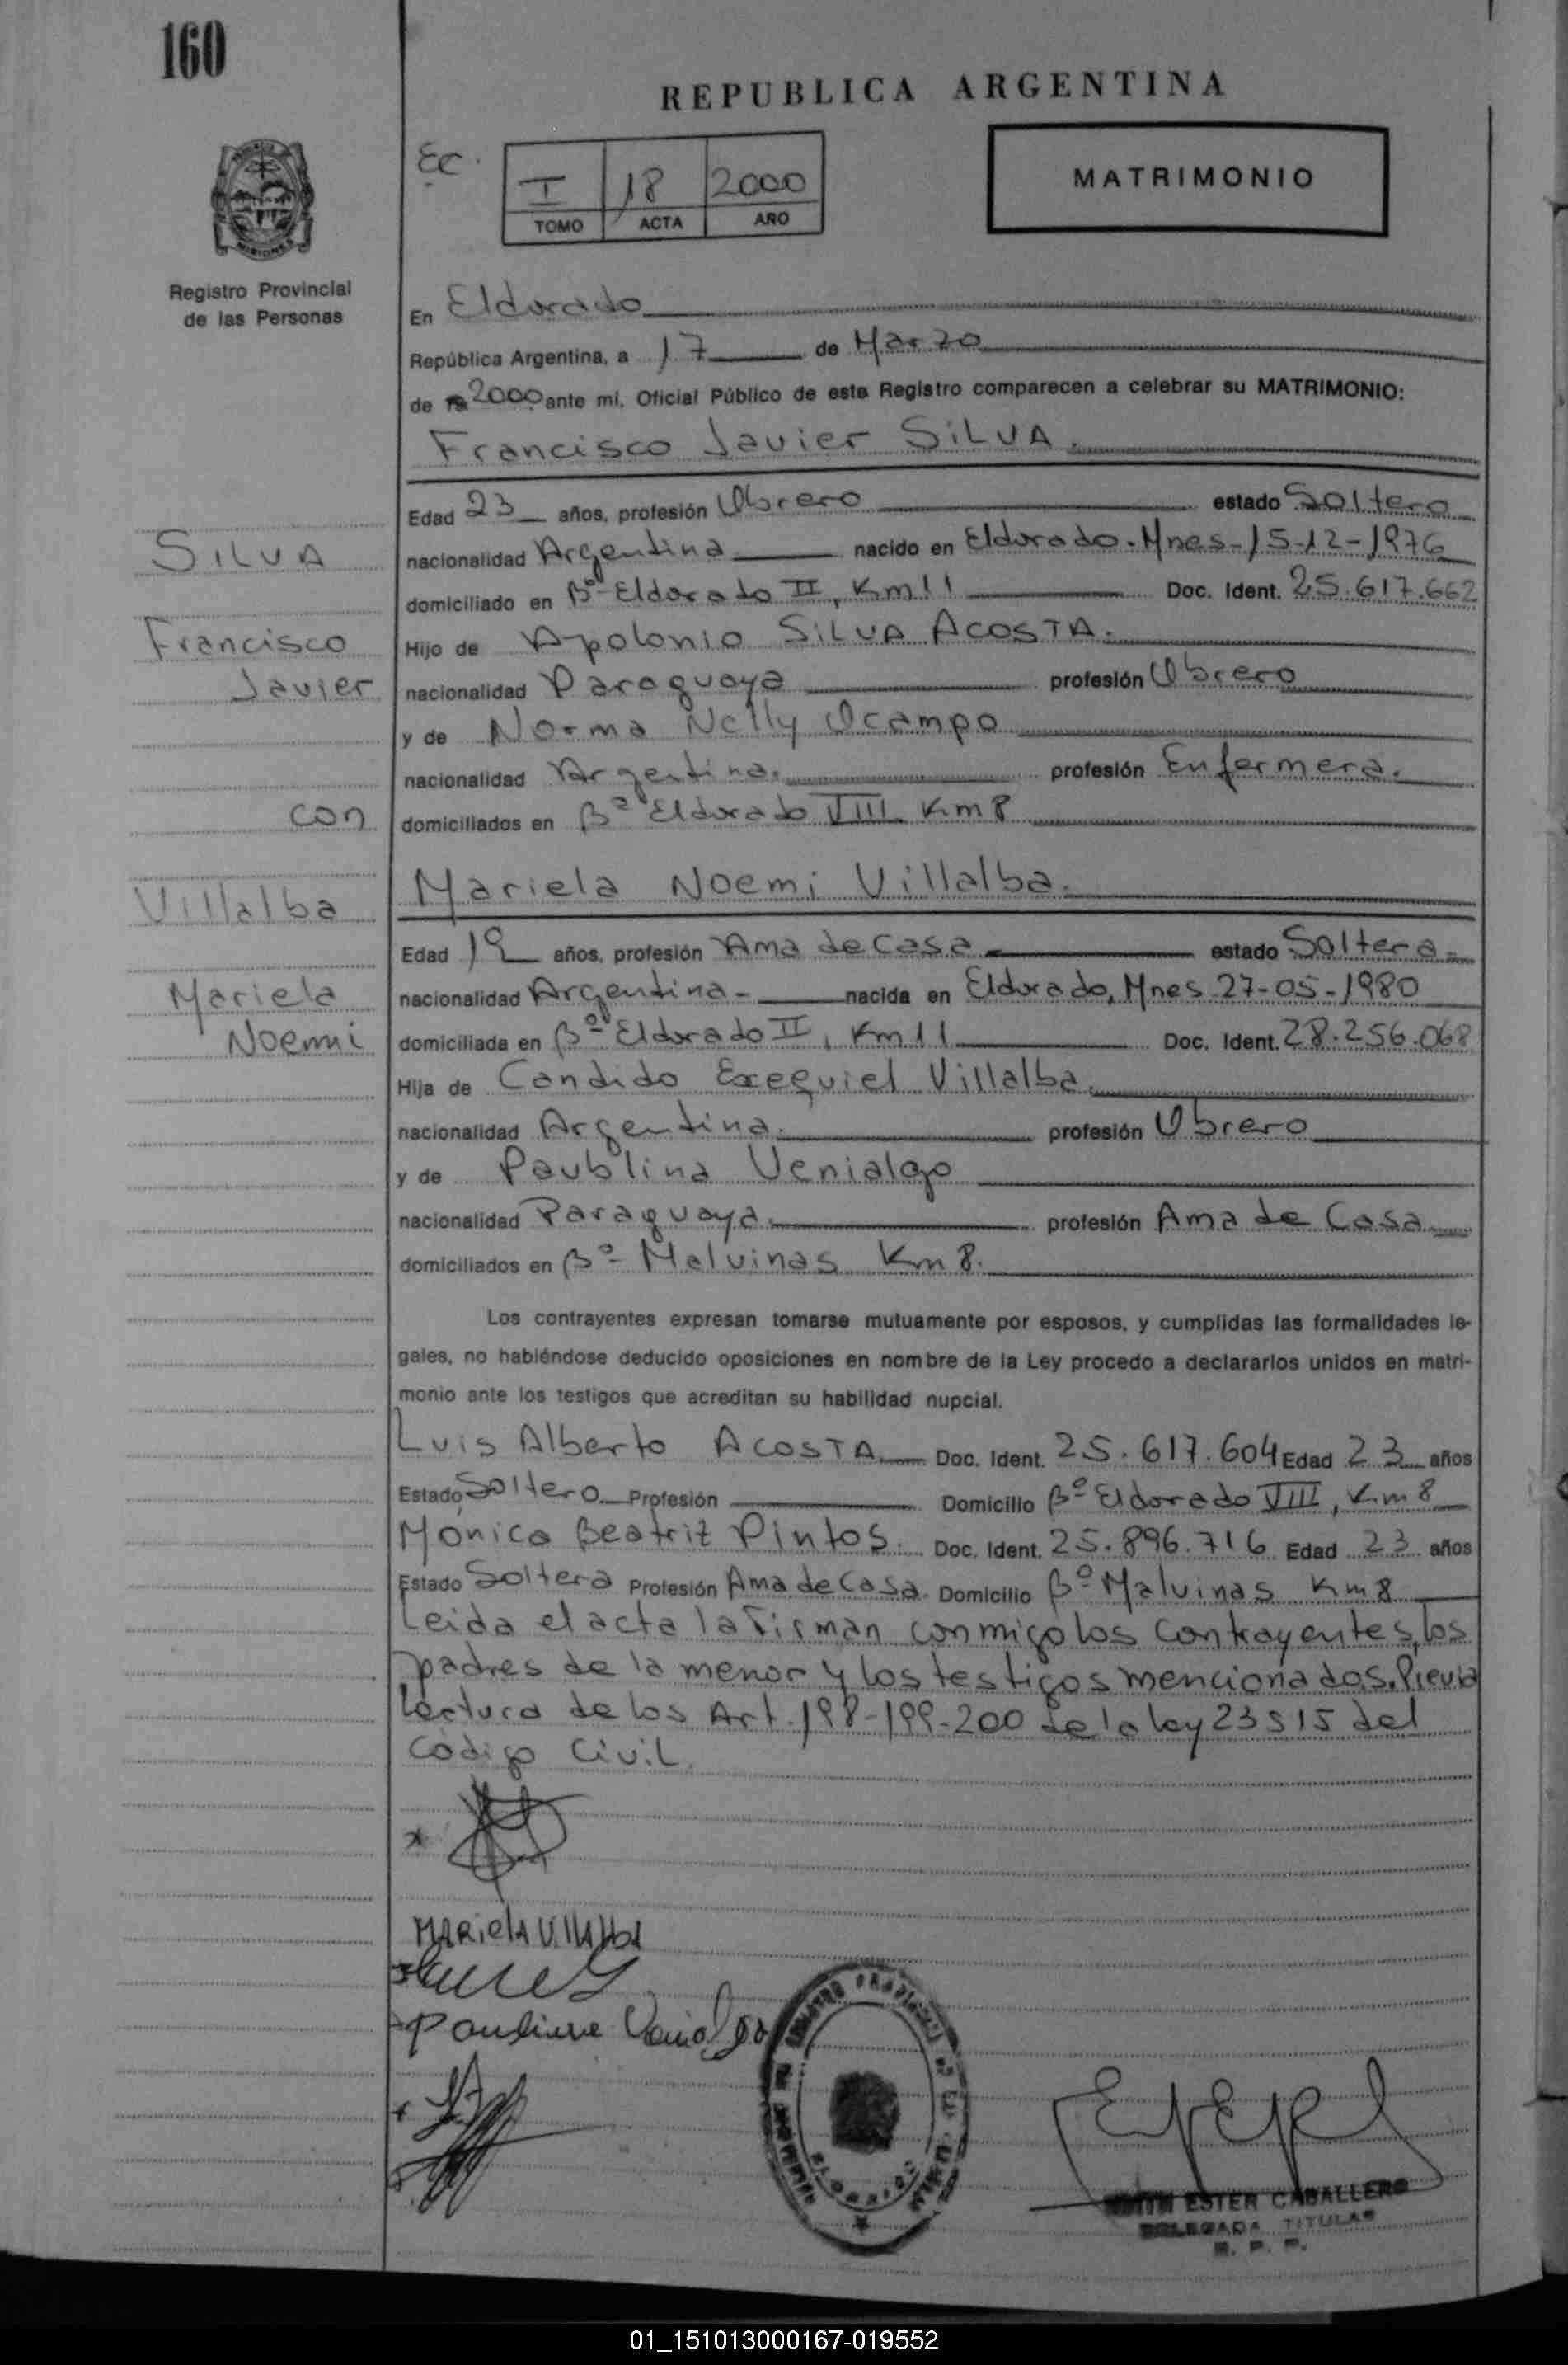 160
REPUBLICA ARGENTINA
Ec.
I 18 2000
TOMO ACTA AÑO
MATRIMONIO
Registro Provincial
de las Personas
En Eldorado
República Argentina, a 17 de Marzo
de 2000 ante mí, Oficial Público de este Registro comparecen a celebrar su MATRIMONIO:
Francisco Javier SILVA.
Edad 23 años, profesión Obrero estado Soltero
SILVA
nacionalidad Argentina nacido en Eldorado-Mnes-15-12-1976
domiciliado en Bº Eldorado II, Km 11 Doc. Ident. 25.617.662
Francisco
Hijo de Apolonio SILVA ACOSTA.
Javier
nacionalidad Paraguaya profesión Obrero
y de Norma Nelly Ocampo
nacionalidad Argentina. profesión Enfermera.
con
domiciliados en Bº Eldorado VIII Km 8
Villalba
Mariela Noemi Villalba.
Edad 19 años, profesión Ama de Casa estado Soltera
Mariela
nacionalidad Argentina- nacida en Eldorado, Mnes 27-05-1980
Noemi
domiciliada en Bº Eldorado II, Km 11 Doc. Ident. 28.256.068
Hija de Candido Exequiel Villalba.
nacionalidad Argentina. profesión Obrero
y de Paublina Venialgo
nacionalidad Paraguaya. profesión Ama de Casa
domiciliados en Bº Malvinas Km 8.
Los contrayentes expresan tomarse mutuamente por esposos, y cumplidas las formalidades le-
gales, no habiéndose deducido oposiciones en nombre de la Ley procedo a declararlos unidos en matri-
monio ante los testigos que acreditan su habilidad nupcial.
Luis Alberto ACOSTA Doc. Ident. 25.617.604 Edad 23 años
Estado Soltero Profesión Domicilio Bº Eldorado VIII, Km 8
Mónica Beatriz Pintos. Doc. Ident. 25.896.716 Edad 23 años
Estado Soltera Profesión Ama de Casa. Domicilio Bº Malvinas Km 8
Leida el acta la firman conmigo los contrayentes, los
padres de la menor y los testigos mencionados. Previa
lectura de los Art. 198-199-200 de la ley 23515 del
código Civil.
MARIELA VILLALBA
Paubline Venialgo
ESTER CABALLERO
DELEGADA TITULAR
R. P. P.
01_151013000167-019552